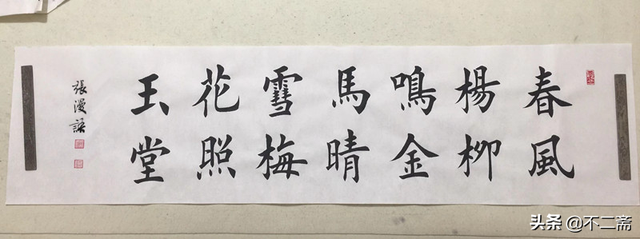 春風
楊柳
鳴金
馬晴
雪梅
花照
玉堂
張漫語
头条 @不二斋